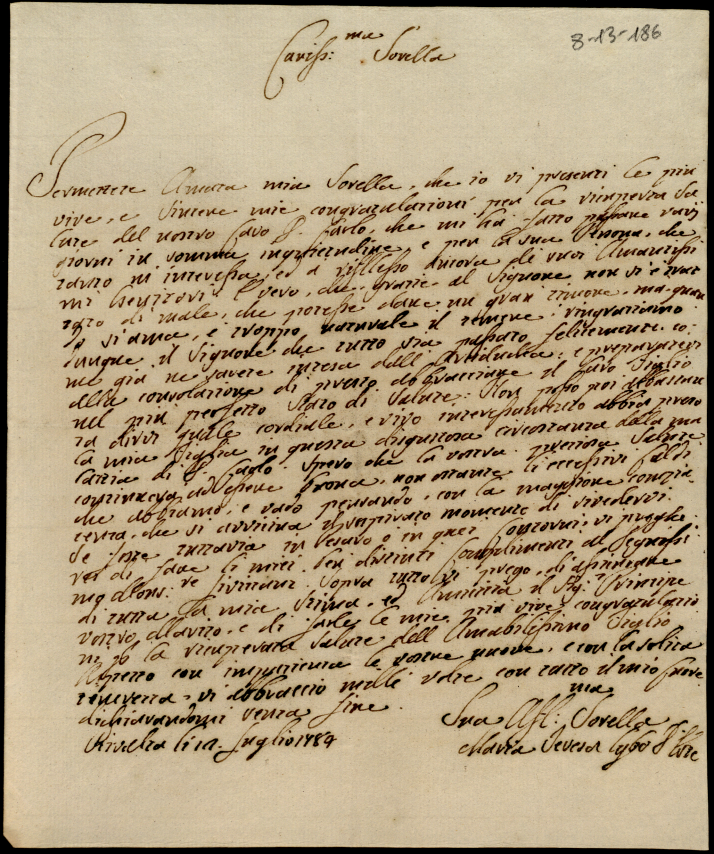 8-13-186
Cariss:ma Sorella
Permettete Amata mia Sorella, che io vi presenti le piu
vive, e sincere mie congratulazioni per la ricuperta Sa
lute del nostro Caro D. Carlo, che mi ha fatto passare varj
giorni in somma inquietudine, e per la sua Persona, che
tanto m'interessa, ed a riflesso ancora de' suoi Amantissi
mi Genitori. E vero, che grazie al Signore non si è trat
tato di male, che potesse dare un gran timore, ma quan
do si ama, è troppo naturale il temere; ringraziamo
dunque il Signore che tutto sia passato felicemente. co:
me già ne sarete intesa dall'Arciduca; e preparatevi
alla consolazione di presto abbracciare il caro Figlio
nel piu perfetto stato di Salute. Non posso poi abbastan
za dirvi quale cordiale, e vivo interessamento abbia preso
la mia Figlia in questa disgustosa circostanza della ma
lattia di D. Carlo. Spero che la vostra preziosa Salute
continuerà ad essere buona, non ostante li eccessivi caldi
che abbiamo, e vado pensando, con la maggiore contin
tezza, che si avvicina il sospirato momento di rivedervi.
Se foste tuttavia in Pesaro o in quei Contorni, vi preghe
rei di fare li miei ben distinti Complimenti al degnissi
mo Mons:re Sopra tutto vi prego, di assicurare
di tutta la mia Stima, ed Amicizia il Sig:r Principe
vostro Marito, e di farle le mie piu vive congratulazio
ni per la ricuperata salute dell'Amabilissimo Figlio
Aspetto con impazienza le vostre nuove, e con la solita
tenerezza, vi abbraccio mille volte con tutto il mio cuore
dichiarandomi senza fine
Rivalta li 12. Luglio 1784
Sua Aff:ma Sorella
Maria Teresa Cybo d'Este